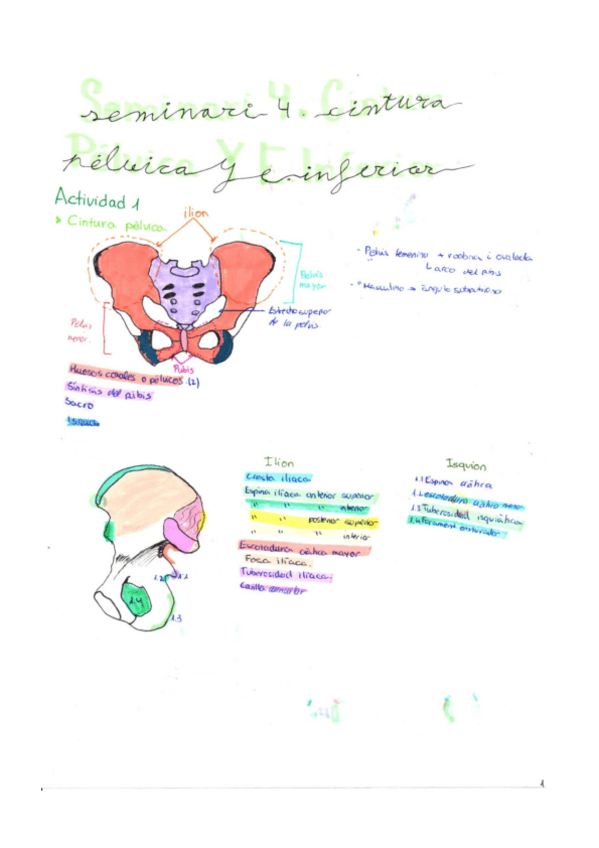 Seminari 4. Cintura
pélvica Y E. inferior
Actividad 1
Cintura pélvica
ilion
Pelvis mayor
Estrecho superior
de la pelvis
Pelvis
menor
Pubis
Huesos coxales o pélvicos (2)
Sínfisis del pubis
Sacro
Isquion
- Pelvis femenino → redona i ovalada
↳ arco del pubis
- " Masculino →
Ilion
Cresta iliaca
Espina iliaca anterior superior
" " " inferior
" " posterior superior
" " " inferior
Escotadura ciática mayor
Fosa iliaca.
Tuberosidad iliaca.
Isquion
1.1 Espina ciática
1.2 Escotadura ciática menor
1.3 Tuberosidad isquiática
1.4 obturador
1.2 1.1
1.4
1.3
1